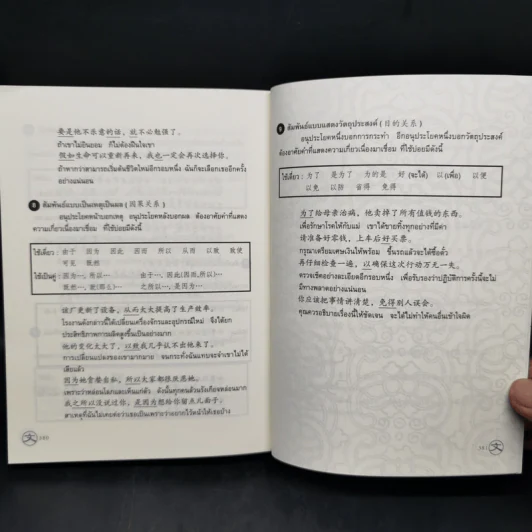 要是他不乐意的话，就不必勉强了。
ถ้าเขาไม่ยินยอม ก็ไม่ต้องฝืนใจเขา
假如生命可以重新再来，我也一定会再次选择你。
ถ้าหากว่าสามารถเริ่มต้นชีวิตใหม่อีกรอบหนึ่ง ฉันก็จะเลือกเธออีกครั้ง
อย่างแน่นอน
8 สัมพันธ์แบบเป็นเหตุเป็นผล (因果关系)
อนุประโยคหน้าบอกเหตุ อนุประโยคหลังบอกผล ต้องอาศัยคำที่แสดง
ความเกี่ยวเนื่องมาเชื่อม ที่ใช้บ่อยมีดังนี้
ใช้เดี่ยว : 由于 因为 因此 因而 所以 从而 以致 致使
可见 既然
ใช้เป็นคู่ : 因为…，所以… 由于…，因此(因而,所以)…
既然…，就(那么)… 之所以…，是因为…
该厂更新了设备，从而大大提高了生产效率。
โรงงานดังกล่าวนี้ได้เปลี่ยนเครื่องจักรและอุปกรณ์ใหม่ จึงได้ยก
ประสิทธิภาพการผลิตสูงขึ้นเป็นอย่างมาก
他的变化太大了，以致我几乎认不出他来了。
การเปลี่ยนแปลงของเขามากมาย จนกระทั่งฉันแทบจะจำเขาไม่ได้
เสียแล้ว
因为她贪婪自私，所以大家都很厌恶她。
เพราะว่าหล่อนโลภและเห็นแก่ตัว ดังนั้นทุกคนล้วนรังเกียจหล่อนมาก
我之所以没说过你，是因为想给你留点儿面子。
สาเหตุที่ฉันไม่เคยต่อว่าเธอเป็นเพราะว่าอยากไว้หน้าให้เธอบ้าง
文 380
9 สัมพันธ์แบบแสดงวัตถุประสงค์ (目的关系)
อนุประโยคหนึ่งบอกการกระทำ อีกอนุประโยคหนึ่งบอกวัตถุประสงค์
ต้องอาศัยคำที่แสดงความเกี่ยวเนื่องมาเชื่อม ที่ใช้บ่อยมีดังนี้
ใช้เดี่ยว : 为了 是为了 为的是 好 (จะได้) 以 (เพื่อ) 以便
以免 以防 省得 免得
为了给母亲治病，他卖掉了所有值钱的东西。
เพื่อรักษาโรคให้กับแม่ เขาได้ขายทิ้งทุกอย่างที่มีค่า
请准备好零钱，上车后好买票。
กรุณาเตรียมเศษเงินให้พร้อม ขึ้นรถแล้วจะได้ซื้อตั๋ว
再仔细检查一遍，以确保这次行动万无一失。
ตรวจเช็คอย่างละเอียดอีกรอบหนึ่ง เพื่อรับรองว่าปฏิบัติการครั้งนี้จะไม่
มีทางพลาดอย่างแน่นอน
你应该把事情讲清楚，免得别人误会。
คุณควรอธิบายเรื่องนี้ให้ชัดเจน จะได้ไม่ทำให้คนอื่นเข้าใจผิด
381 文